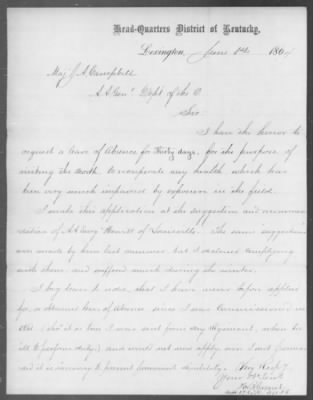 Head-Quarters District of Kentucky,
Lexington, June 1864
Maj. J. A. Campbell
A. A. Genl Dept of the O.
Sir
I have the honor to
request a leave of Absence for Thirty days, for the purpose of
visiting the North to recuperate my health, which has
been very much impaired by exposure in the field.
I make this application at the suggestion and recommen
dation of of Louisville. The same suggestions
were made by him last summer but I declined complying
with them, and suffered much during the winter.
I beg leave to add, that I have never before applied
for a leave of Absence since I was Commissioned in
1861 I was sent from my Regiment, when too
ill to perform duty) and would not now apply were I not
it is necessary to prevent permanent disability.
Very Resp'y
Your Obt Servt